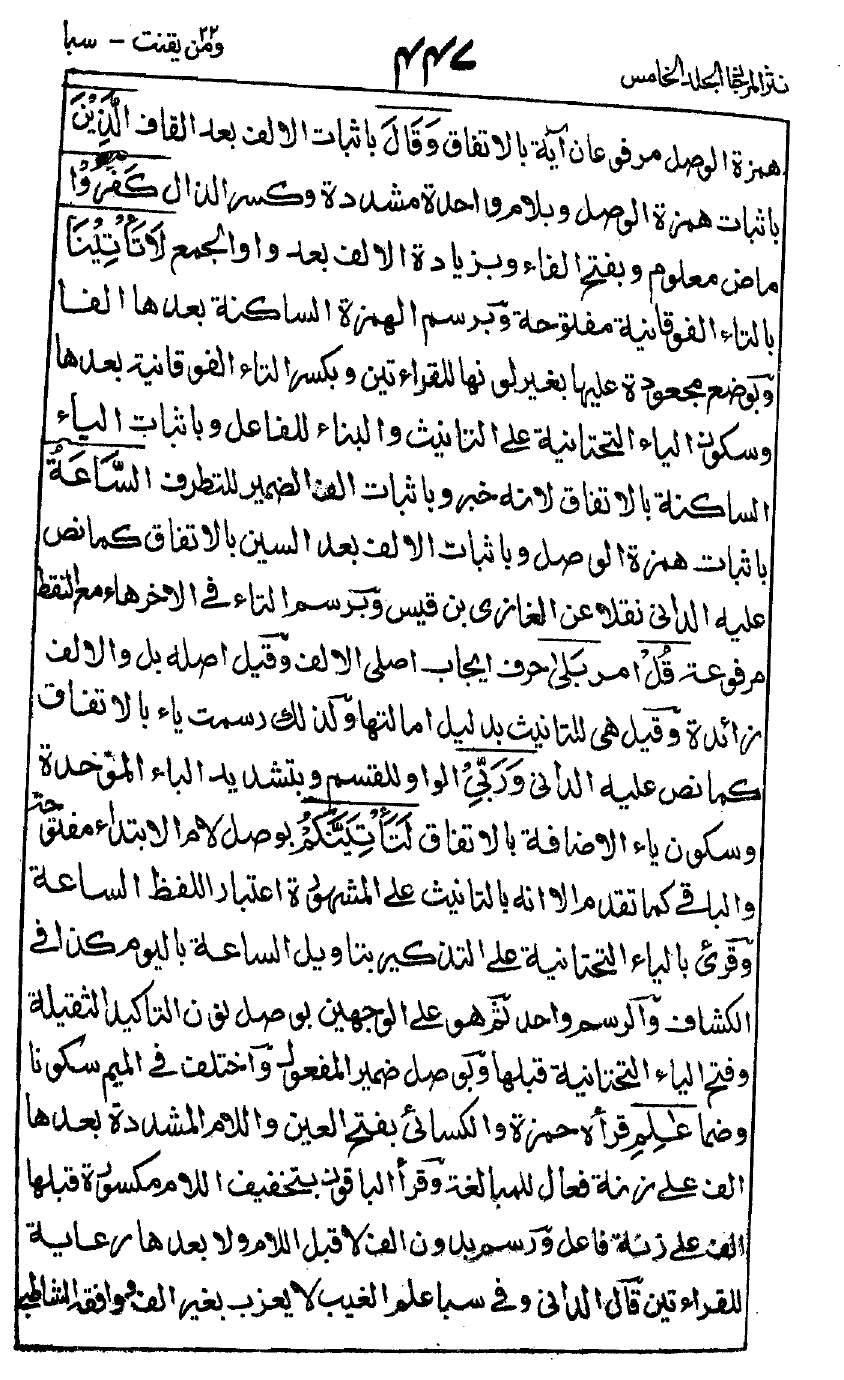 نثر المرجان الجلد الخامس
۴۴۷
ومن يقنت ۲۲ – سبا
همزة الوصل مرفوعان آية بالاتفاق وَقَالَ باثبات الالف بعد القاف الَّذِيْنَ
باثبات همزة الوصل وبلام واحدة مشددة وكسر الذال كَفَرُوْا
ماض معلوم وبفتح الفاء وبزيادة الالف بعد واو الجمع لَا تَأْتِيْنَا
بالتاء الفوقانية مفتوحة وبرسم الهمزة الساكنة بعدها الفا
وبوضع مجعودة عليها بغير لونها للقراءتين وبكسر التاء الفوقانية بعدها
وسكون الياء التحتانية على التانيث والبناء للفاعل وباثبات الياء
الساكنة بالاتفاق لانه خبر وباثبات الف الضمير للتطرف السَّاعَةُ
باثبات همزة الوصل وباثبات الالف بعد السين بالاتفاق كما نص
عليه الداني نقلا عن الغازى بن قيس وبرسم التاء في الاخر هاء مع النقط
مرفوعة قُلْ امر بَلٰى حرف ايجاب اصلى الالف وقيل اصله بل والالف
زائدة وقيل هى للتانيث بدليل امالتها وكذلك رسمت ياء بالاتفاق
كما نص عليه الدانى وَرَبِّيْ الواو للقسم وبتشديد الباء الموحدة
وسكون ياء الاضافة بالاتفاق لَتَأْتِيَنَّكُمْ بوصل لام الابتداء مفتوحة
والباقي كما تقدم الا انه بالتانيث على المشهورة اعتبار اللفظ الساعة
وقرئ بالياء التحتانية على التذكير بتاويل الساعة باليوم كذا في
الكشاف والرسم واحد ثم هو على الوجهين بوصل نون التاكيد الثقيلة
وفتح الياء التحتانية قبلها وبوصل ضمير المفعول واختلف في الميم سكونا
وضما عٰلِمِ قرأه حمزة والكسائى بفتح العين واللام المشددة بعدها
الف على زنة فعال للمبالغة وقرأ الباقون بتخفيف اللام مكسورة قبلها
الف على زنة فاعل ورسم بدون الف لا قبل اللام ولا بعدها رعاية
للقراءتين قال الدانى وفي سبا علم الغيب لا يعزب بغير الف ووافقه الشاطبى